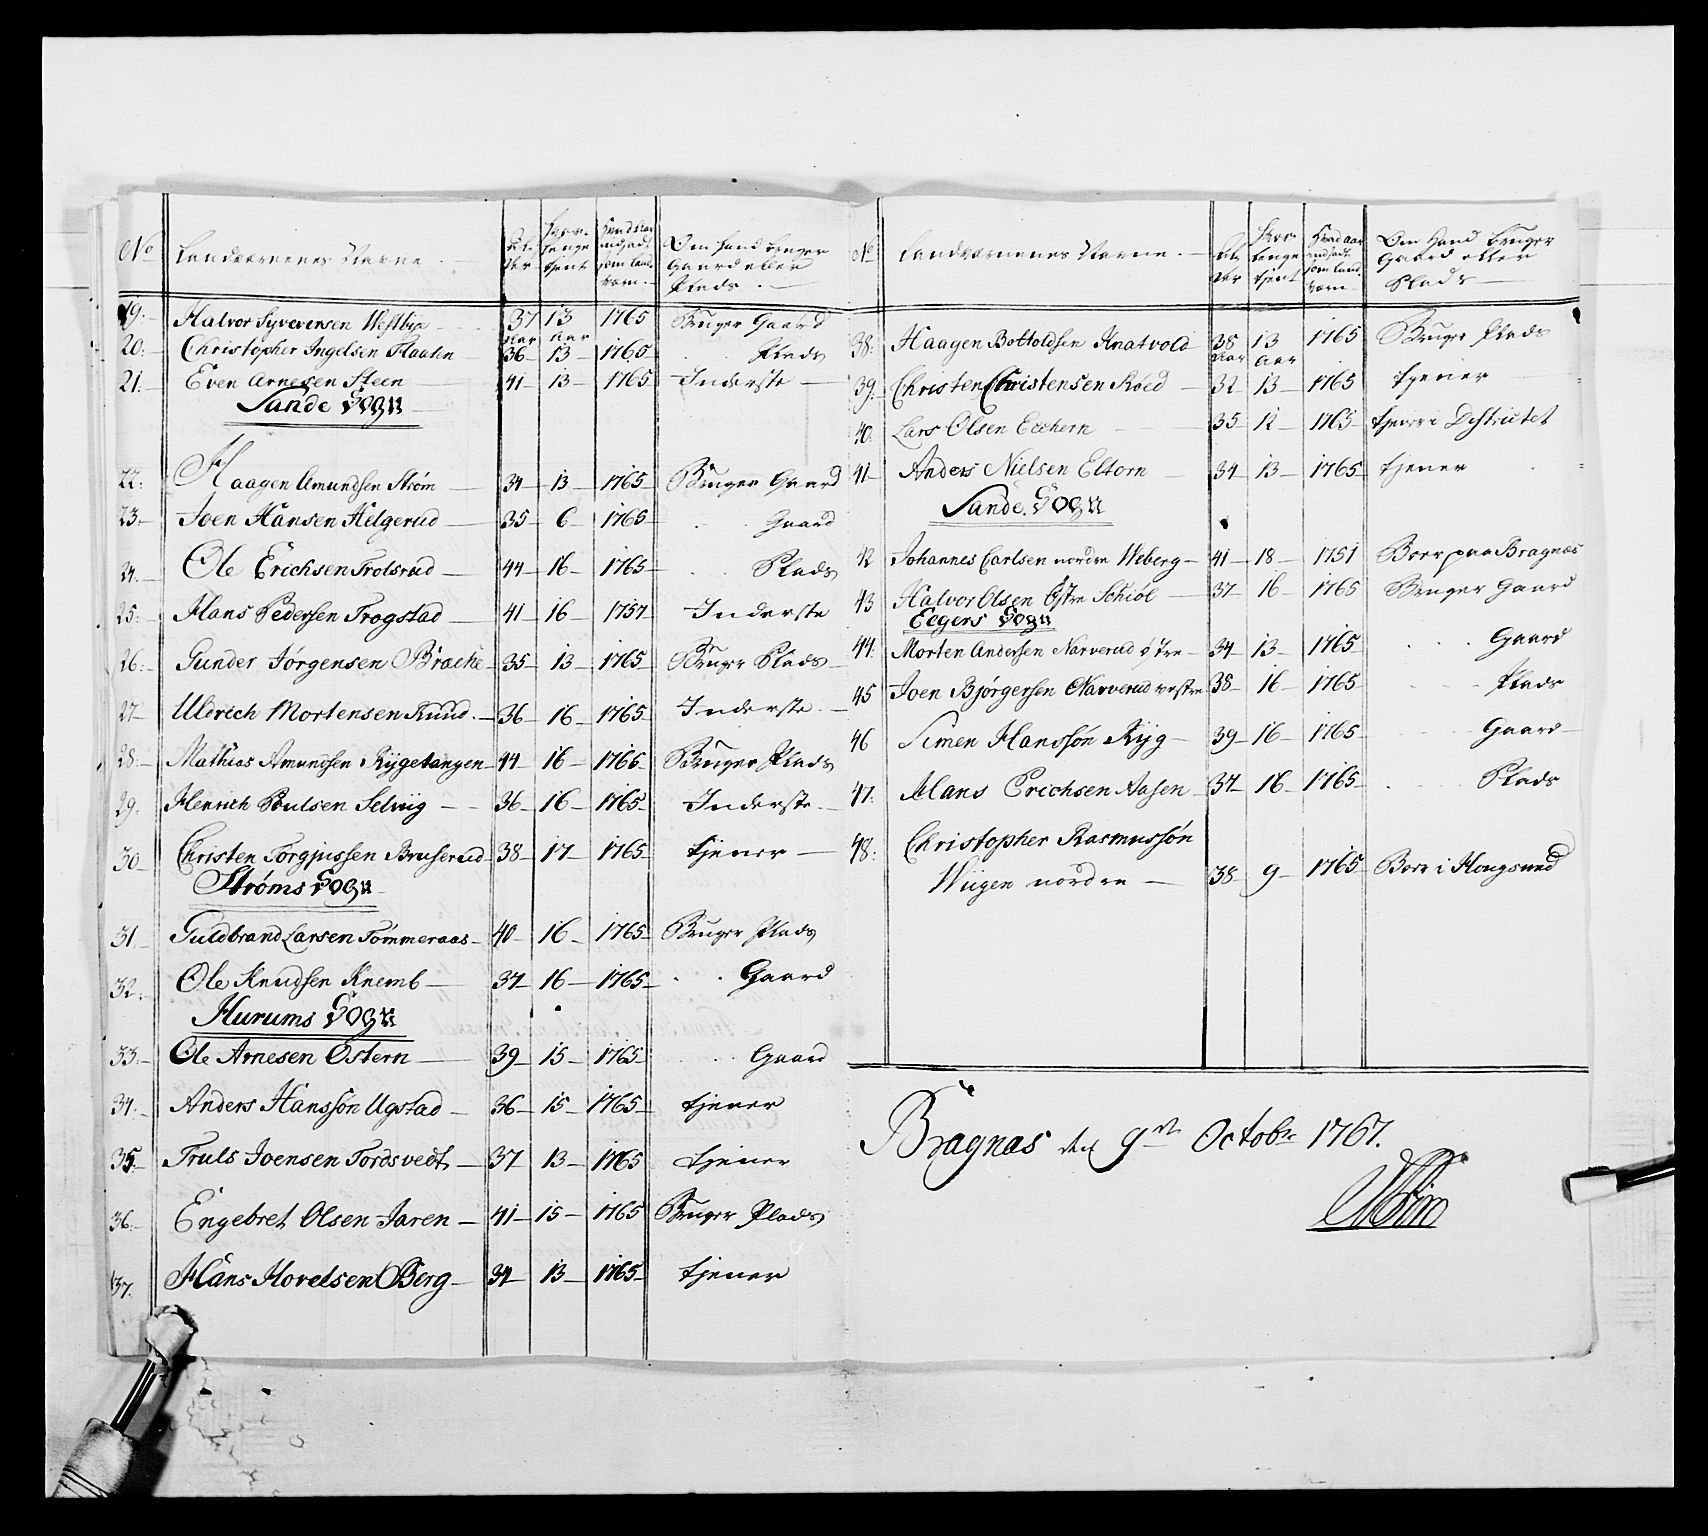 No Landværnenes Navne Al-der Hvor længe tient Hvad Aar indsadt som land-værn Om hand bruger Gaard eller Plads
19. Halvor Syversen Westbye 37 Aar 13 Aar 1765 Bruger Gaard
20. Christopher Ingelsen Haalen 36 13 1765 Plads
21. Even Arnesen Steen 41 13 1765 Inderste
Sande Sogn
22. Haagen Amundsen Strøm 34 13 1765 Bruger Gaard
23. Joen Hansen Helgerud 35 6 1765 Gaard
24. Ole Erichsen Trolsrud 44 16 1765 Plads
25. Hans Pedersen Trogstad 41 16 1757 Inderste
26. Gunder Jørgensen Brache 35 13 1765 Bruger Plads
27 Uldrich Mortensen Ruud 36 16 1765 Inderste
28. Mathias Amundsen Rygetangen 44 16 1765 Bruger Plads
29. Henrich Poulsen Selviig 36 16 1765 Inderste
30 Christen Torgjussen Bruserud 38 17 1765 tjener
Strøms Sogn
31. Guldbrand Larsen Tømmeraas 40 16 1765 Bruger Plads
32. Ole Knudsen Knemb 37 16 1765 Gaard
Hurums Sogn
33. Ole Arnesen Østern 39 15 1765 Gaard
34. Anders Hanssøn Ugstad 36 15 1765 tjener
35. Truls Joensen Tordsvedt 37 13 1765 tjener
36. Engebret Olsen Jaren 41 15 1765 Bruger Plads
37. Hans Hovelsen Berg 34 13 1765 tjener
No Landværnenes Navne Al-der Hvor længe tjent Hvad Aar indsadt som land-værn Om Hand bruger Gaard eller Plads
38. Haagen Bottoldsen Knatvold 38 Aar 13 Aar 1765 Bruger Plads
39. Christen Christensen Roed 32 13 1765 tjener
40. Lars Olsen Echern 35 12 1765 tjener i Districtet
41 Anders Nielsen Eltorn 34 13 1765 tjener
Sande Sogn
42 Johannes Carlsen nordre Weberg 41 18 1751 Boer paa Bragnæs
43 Halvor Olsen Østre Schiøl 37 16 1765 Bruger Gaard
Eegers Sogn
44. Morten Andersen Narverud østre 34 13 1765 Gaard
45 Joen Bjørgersen Narverud vestre 38 16 1765 Plads
46 Simen Hanssøn Ryg 39 16 1765 Gaard
47. Hans Erichsen Aasen 37 16 1765 Plads
48. Christopher Rasmussøn
Wiigen nordre 38 9 1765 Boer i Hougsund
Bragnæs den 9de Octobr 1767.